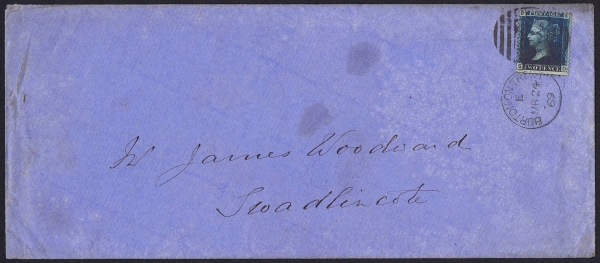 POSTAGE
TWO PENCE
BURTON ON TRENT
E
MR 24
69
Mr James Woodward
Swadlincote